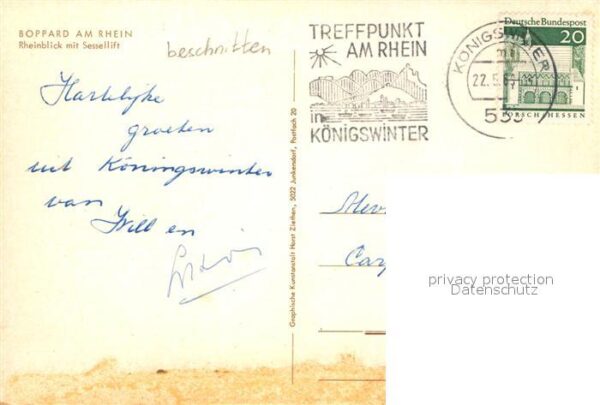 BOPPARD AM RHEIN
Rheinblick mit Sessellift
beschnitten
Hartelijke
groeten
uit Köningswinter
van
Will en
TREFFPUNKT
AM RHEIN
in
KÖNIGSWINTER
KÖNIGSWINTER
22.5.
533
Deutsche Bundespost
20
LORSCH/HESSEN
Graphische Kunstanstalt Horst Ziethen, 5022 Junkersdorf, Postfach 20
privacy protection
Datenschutz